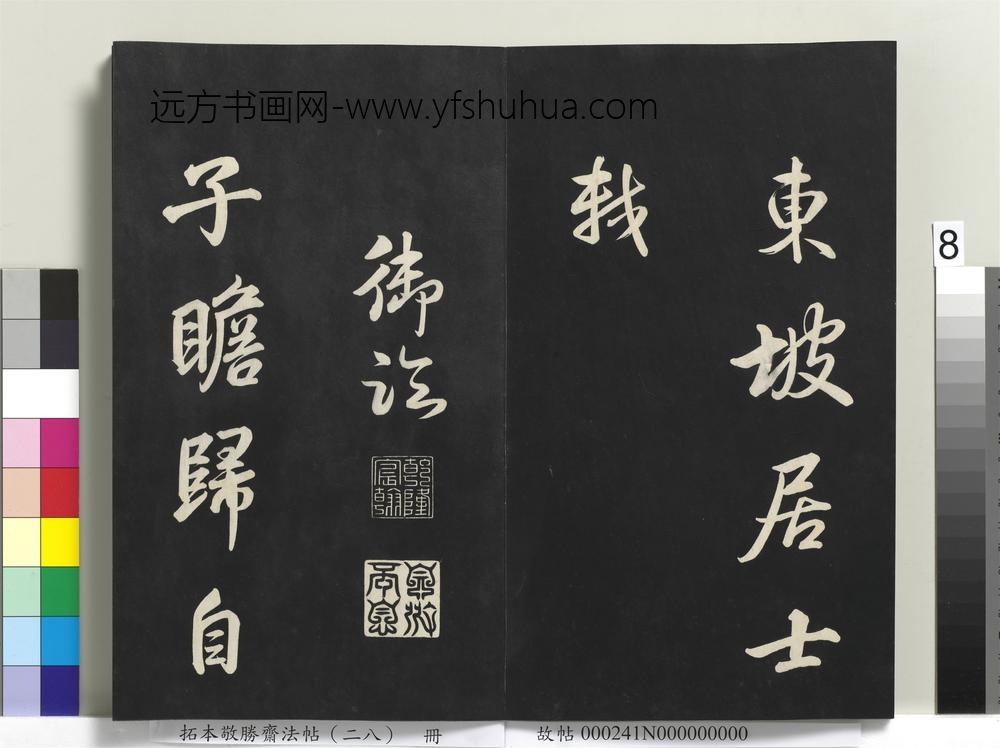 远方书画网-www.yfshuhua.com
東坡居士
軾
御臨
乾隆
宸翰
子瞻歸自
8
拓本敬勝齋法帖（二八） 冊
故帖 000241N000000000